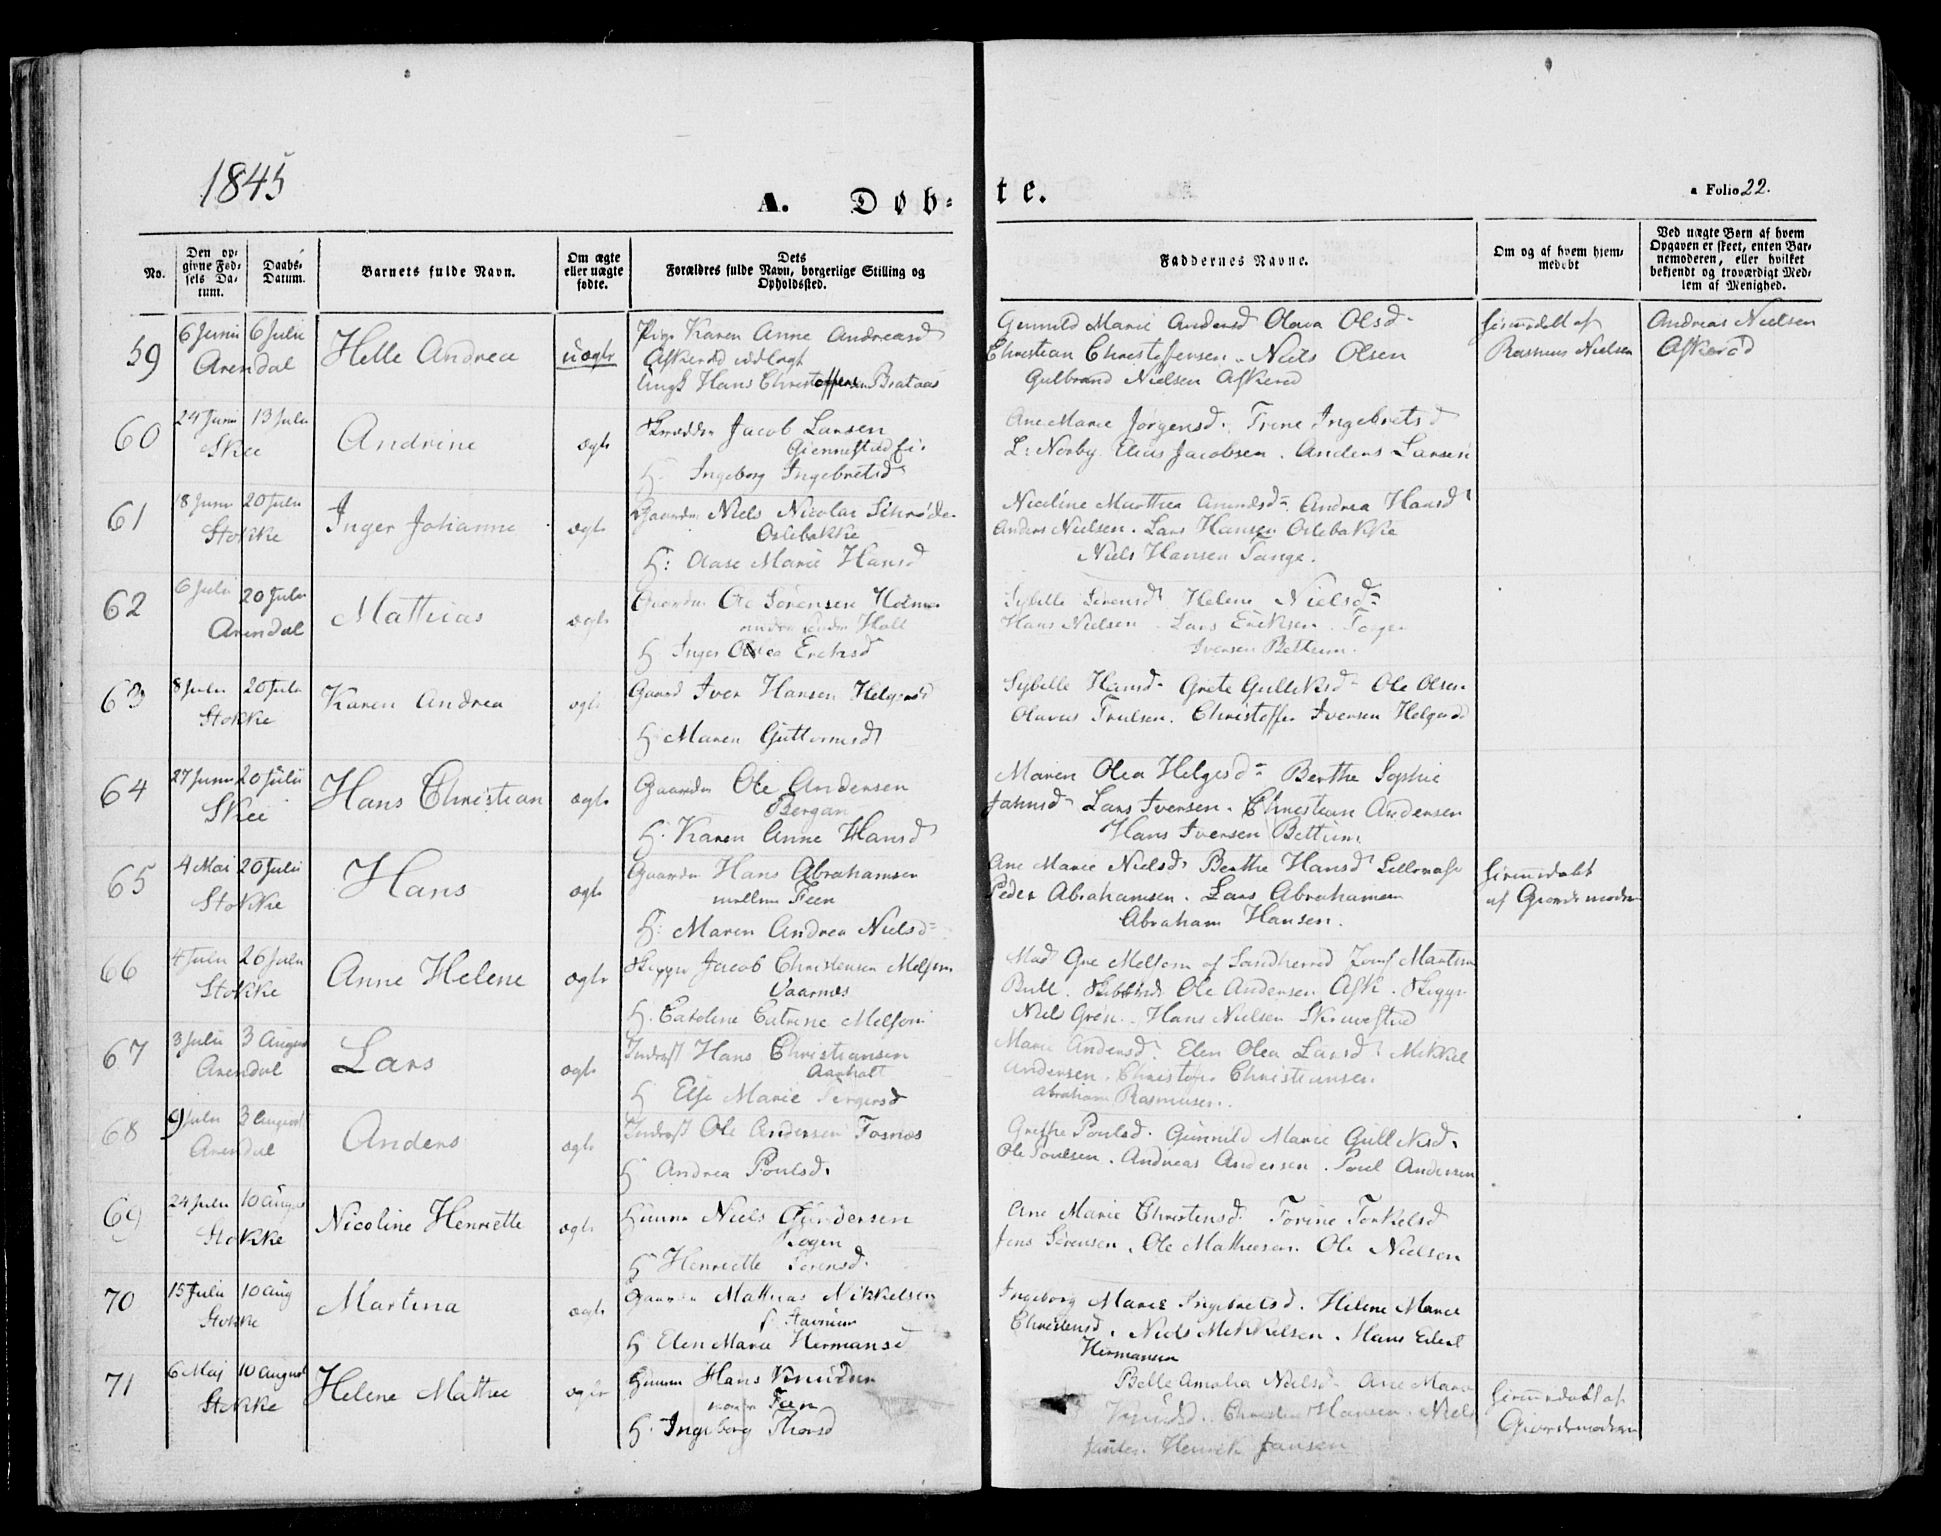 1845
A. Døb-
te.
a Folio 22.
No.
Den op-
givne Fød-
sels Da-
tum.
Daabs-
Datum.
Barnets fulde Navn.
Om ægte
eller uægte
fødte.
Dets
Forældres fulde Navn, borgerlige Stilling og
Opholdssted.
Faddernes Navne.
Om og af hvem hjem-
medøbt
Ved uægte Børn af hvem
Opgaven er skeet, enten Bar-
nemoderen, eller hvilket
bekjendt og troværdigt Med-
lem af Menighed.
59
6 Juni 6 Julii
Arendal
Helle Andrea
uægte
Pige Karen Anne Andreasd
Askerød udlagt
Ungk Hans Christoffersen Brataas
Gunnild Marie Andersd Olava Olsd
Christian Christoffersen. Niels Olsen
Gulbrand Nielsen Askerød
hiemdøbt af
Rasmus Nielsen
Andreas Nielsen
Askerød
60
24 Juni 13 Julii
Skee
Andrine
ægte
Skrædder Jacob Larsen
Giennestad
H. Ingeborg Ingebretsd
Ane Marie Jørgensd. Trine Ingebretsd
L: Norby. Elias Jacobsen. Anders Larsen
61
18 Juni 20 Julii
Stokke
Inger Johanne
ægte
Gaardm Niels Nicolai Schrøder
Oslebakke
H: Aase Marie Hansd
Nicoline Marthea Amundsd Andrea Hansd
Anders Nielsen. Lars Hansen Oslebakke
Niels Hansen Tange.
62
6 Julii 20 Julii
Arendal
Mathias
ægte
Gaardm Ole Sørensen Holmen
Holt
H. Inger Olea Ericksd
Sybelle Sørensd Helene Nielsd
Hans Nielsen Lars Ericksen.
Iversen Bettum.
63
8 Julii 20 Julii
Stokke
Karen Andrea
ægte
Gaard Iver Hansen Helgerød
H. Maren Guttormsd
Sybelle Hansd Grete Gulliksd Ole Olsen
Olavus Trulsen. Christoffer Iversen Helgerød
64
27 Juni 20 Julii
Skee
Hans Christian
ægte
Gaardm Ole Andersen
Bergan
H. Karen Anne Hansd
Maren Olea Helgesd Berthe Sophie
Jahnsd Lars Iversen. Christian Andersen
Hans Iversen Bettum
65
4 Mai 20 Julii
Stokke
Hans
ægte
Gaardm Hans Abrahamsen
mellem Feen
H: Maren Andrea Nielsd
Ane Marie Nielsd Berthe Hansd
Peder Abrahamsen. Lars Abrahamsen
Abraham Hansen.
hiemmedøbt
af Giordemoder
66
4 Julii 26 Julii
Stokke
Anne Helene
ægte
Skipper Jacob Christensen Melsom
Vaarnæs
H. Caroline Catrine Melsom
Mad Melsom af Sandherred Jomf Martine
Bull. Ole Andersen Ask. Skipper
Niels Gren. Hans Nielsen Skruvestad
67
3 Julii 3 August
Arendal
Lars
ægte
Inderst Hans Christiansen
Aarholt
H. Else Marie
Marie Andersd. Elen Olea Larsd. Mikkel
Andersen. Christian Christiansen.
Abraham Rasmusen.
68
9 Julii 3 August
Arendal
Anders
ægte
Inderst Ole Andersen Fosnæs
H. Andrea Poulsd.
Grethe Poulsd. Gunnild Marie Gulliksd.
Ole Poulsen. Andreas Andersen. Poul Andersen
69
24 Julii 10 August
Stokke
Nicoline Henriette
ægte
Niels Gundersen
Skogen
H Henriette Sørensd.
Ane Marie Christensd. Torine Torkelsd
Jens Sørensen. Ole Mathiesen. Ole Nielsen
70
15 Julii 10 Aug
Stokke
Martina
ægte
Gaardm Mathias Mikkelsen
Stavnum
H Elen Marie Hermansd
Ingeborg Marie Ingebretsd. Helene Marie
Christensd. Niels Mikkelsen. Hans Edert
Hermansen
71
6 Maj 10 August
Stokke
Helene Mathee
ægte
Hans Knudsen
Feen
H. Ingeborg Thorsd
Belle Amalia Nielsd. Ane Marie
Knudsd. Christen Hansen. Niels
Henrik Jansen
hiemmedøbt af
Giordemoderen